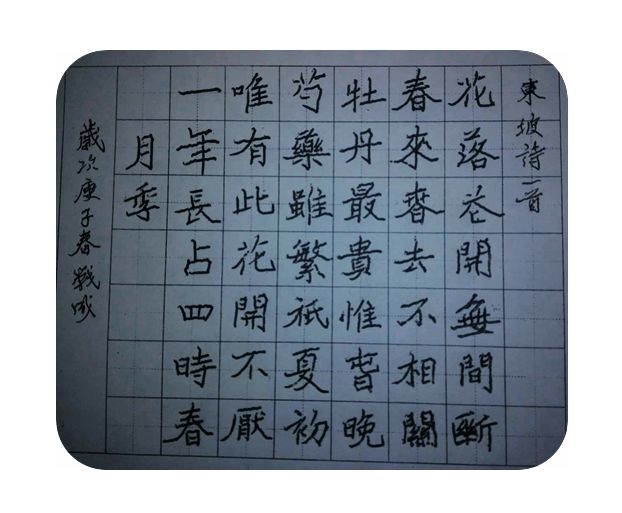 東坡詩一首
花落花開無間斷
春來春去不相關
牡丹最貴惟春晚
芍藥雖繁衹夏初
唯有此花開不厭
一年長占四時春
月季
歲次庚子春戰